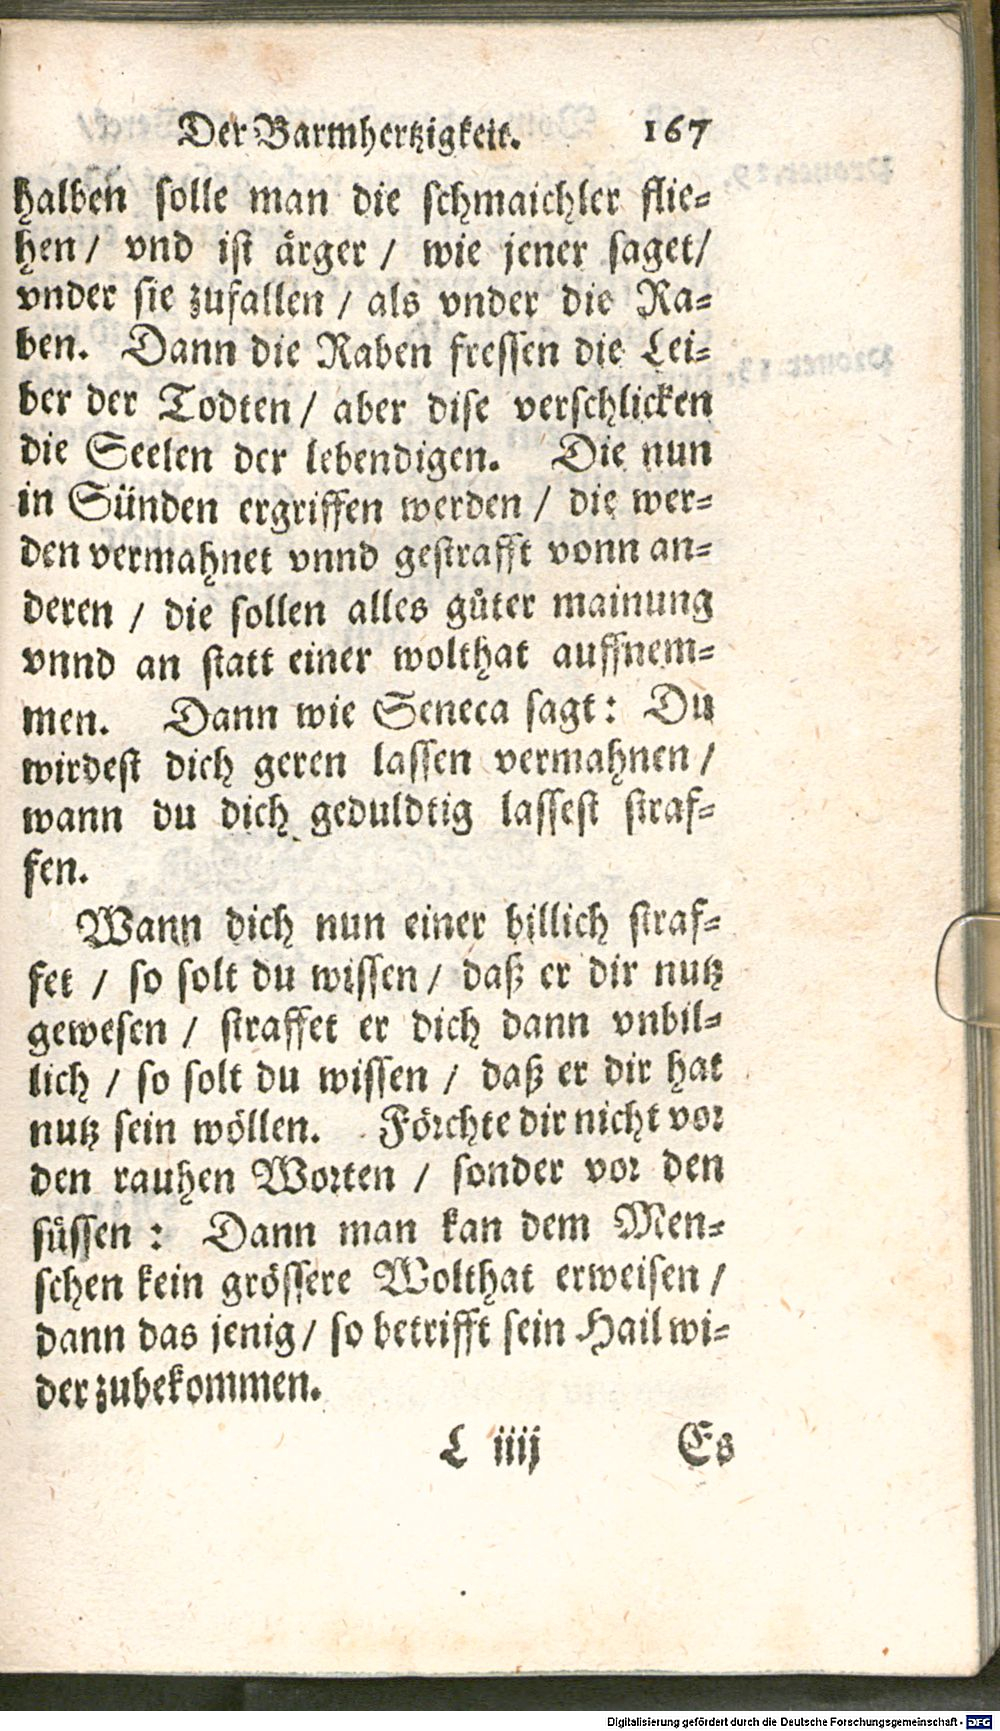 Der Barmhertzigkeit. 167
halben solle man die schmaichler flie-
hen / vnd ist årger / wie jener saget/
vnder sie zufallen / als vnder die Ra-
ben. Dann die Raben fressen die Lei-
ber der Todten / aber dise verschlicken
die Seelen der lebendigen. Die nun
in Sünden ergriffen werden / die wer-
den vermahnet vnnd gestrafft vonn an-
deren / die sollen alles gůter mainung
vnnd an statt einer wolthat auffnem-
men. Dann wie Seneca sagt: Du
wirdest dich geren lassen vermahnen /
wann du dich geduldtig lassest straf-
fen.
Wann dich nun einer billich straf-
fet / so solt du wissen / daß er dir nutz
gewesen / straffet er dich dann vnbil-
lich / so solt du wissen / daß er dir hat
nutz sein wöllen. Förchte dir nicht vor
den rauhen Worten / sonder vor den
süssen : Dann man kan dem Men-
schen kein grössere Wolthat erweisen /
dann das jenig / so betrifft sein Hail wi-
der zubekommen.
L iiij Es
Digitalisierung gefördert durch die Deutsche Forschungsgemeinschaft - DFG